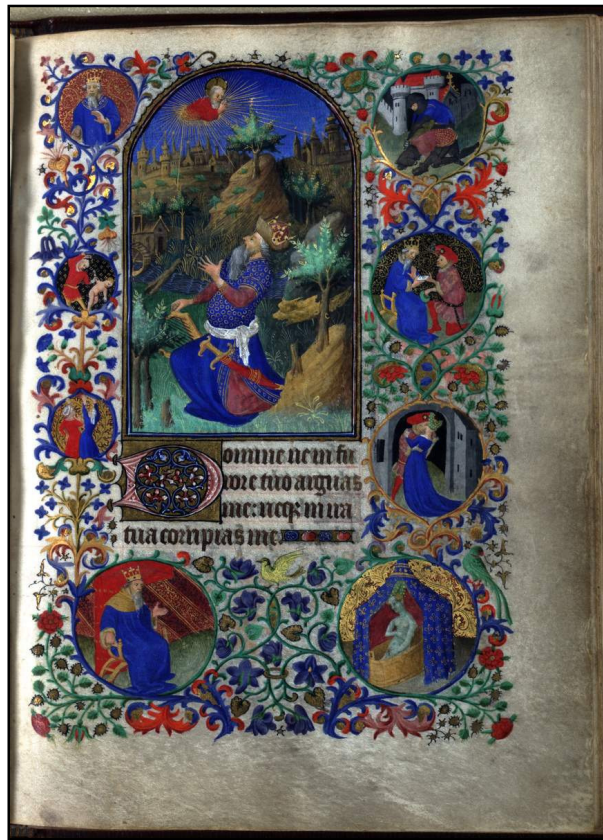 Domine ne in fu
rore tuo arguas
me: neqz in ira
tua corripias me.